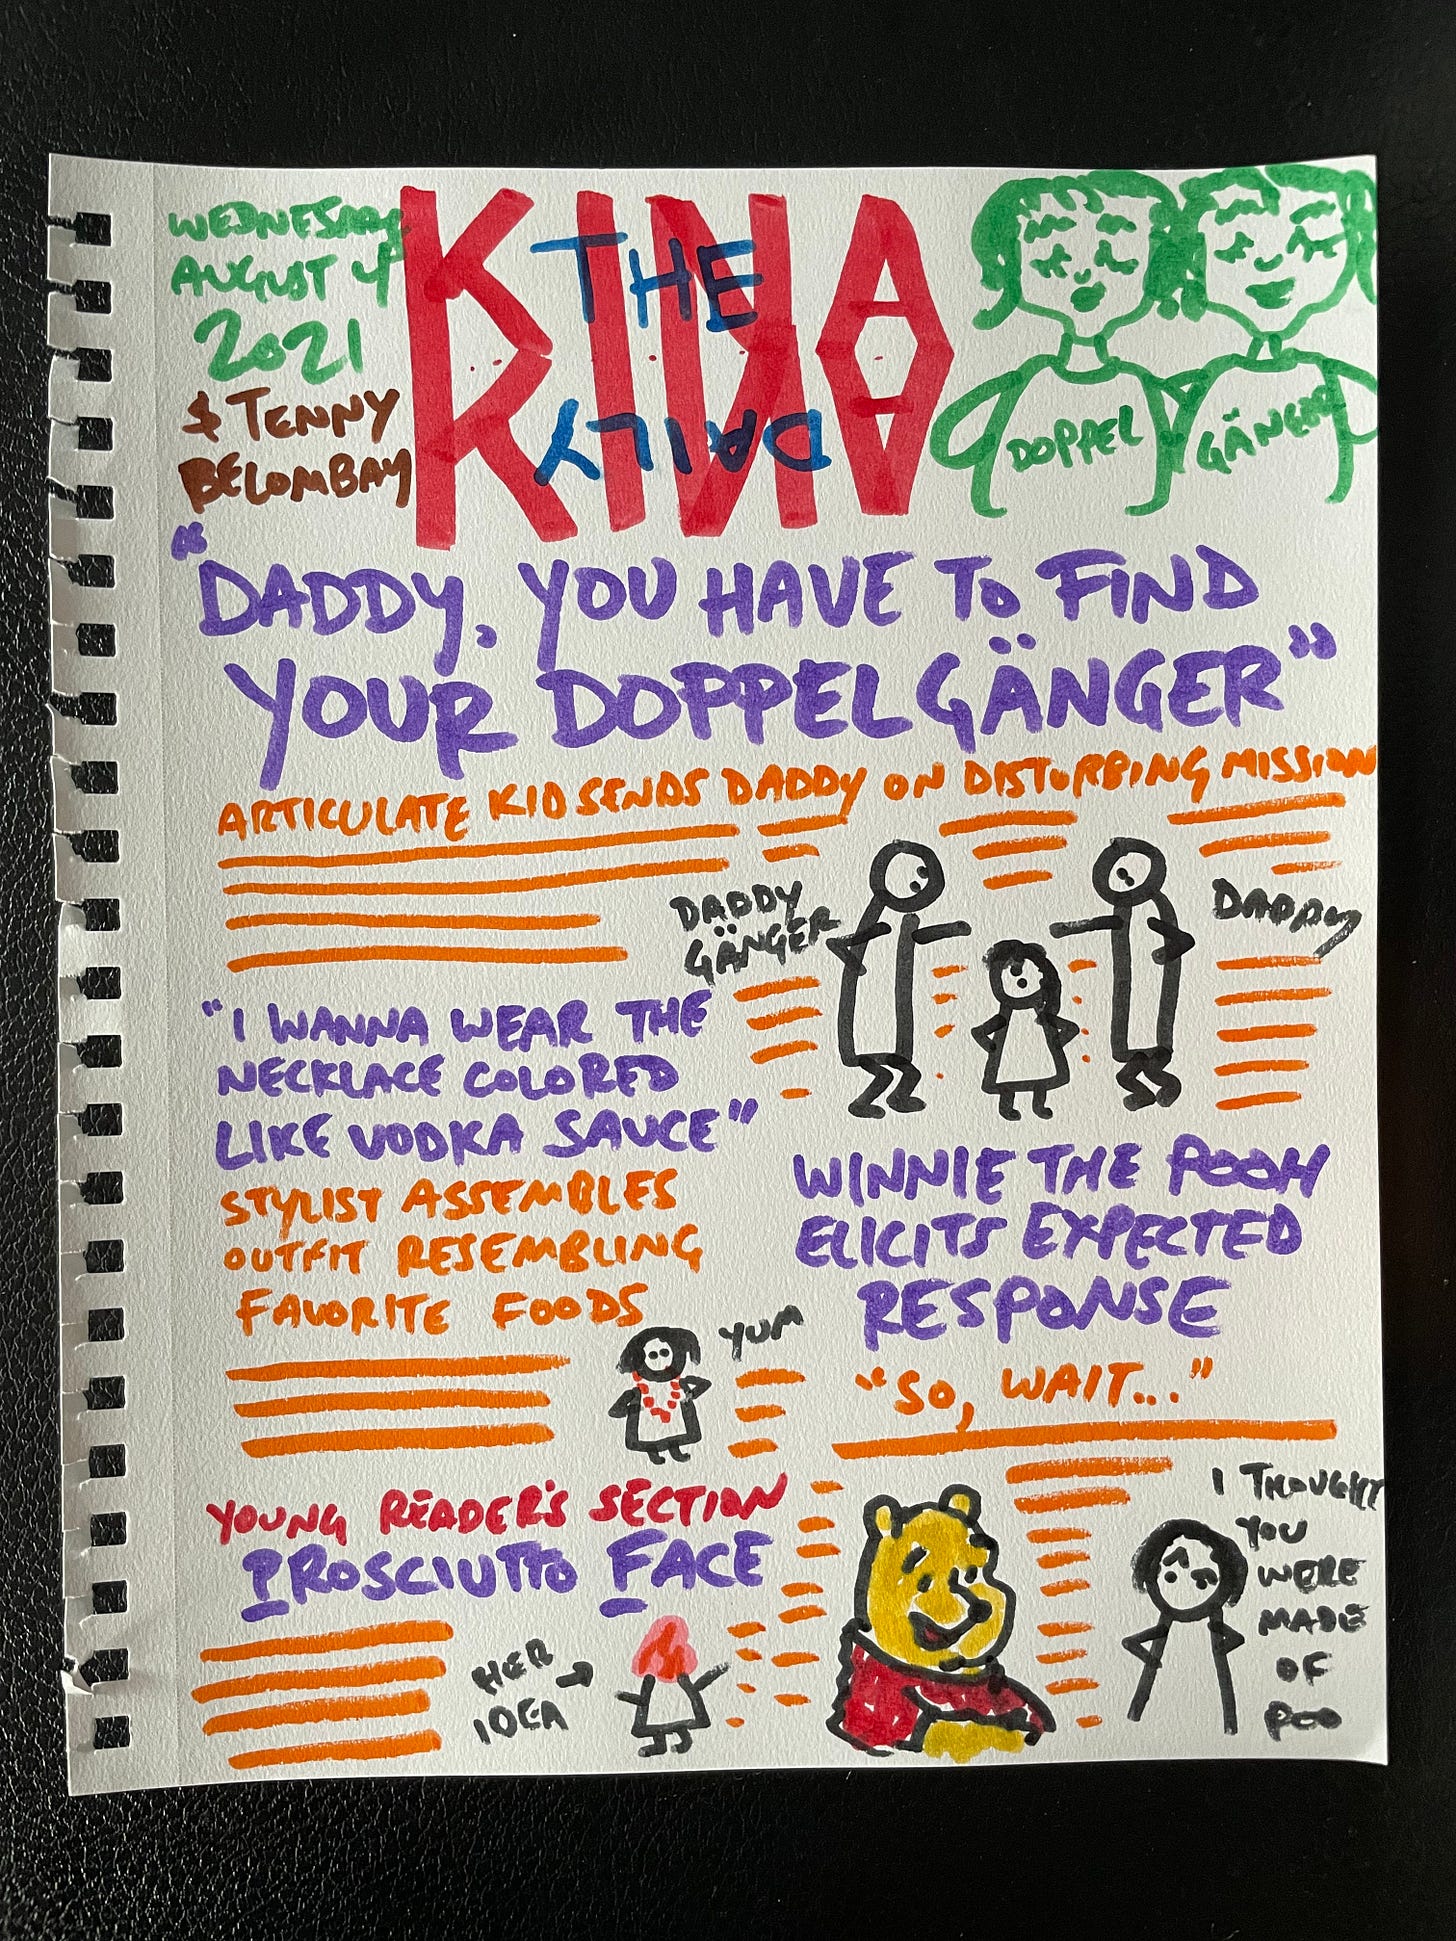 WEDNESDAY
AUGUST 4
2021
& TENNY
BELOMBAY
THE
KINA
DAILY
DOPPEL
GÄNGER
"DADDY, YOU HAVE TO FIND
YOUR DOPPELGÄNGER"
ARTICULATE KID SENDS DADDY ON DISTURBING MISSION
DADDY
GÄNGER
DADDY
"I WANNA WEAR THE
NECKLACE COLORED
LIKE VODKA SAUCE"
STYLIST ASSEMBLES
OUTFIT RESEMBLING
FAVORITE FOODS
YUM
WINNIE THE POOH
ELICITS EXPECTED
RESPONSE
"SO, WAIT..."
I THOUGHT
YOU
WERE
MADE
OF
POO
YOUNG READER'S SECTION
PROSCIUTTO FACE
HER
IDEA